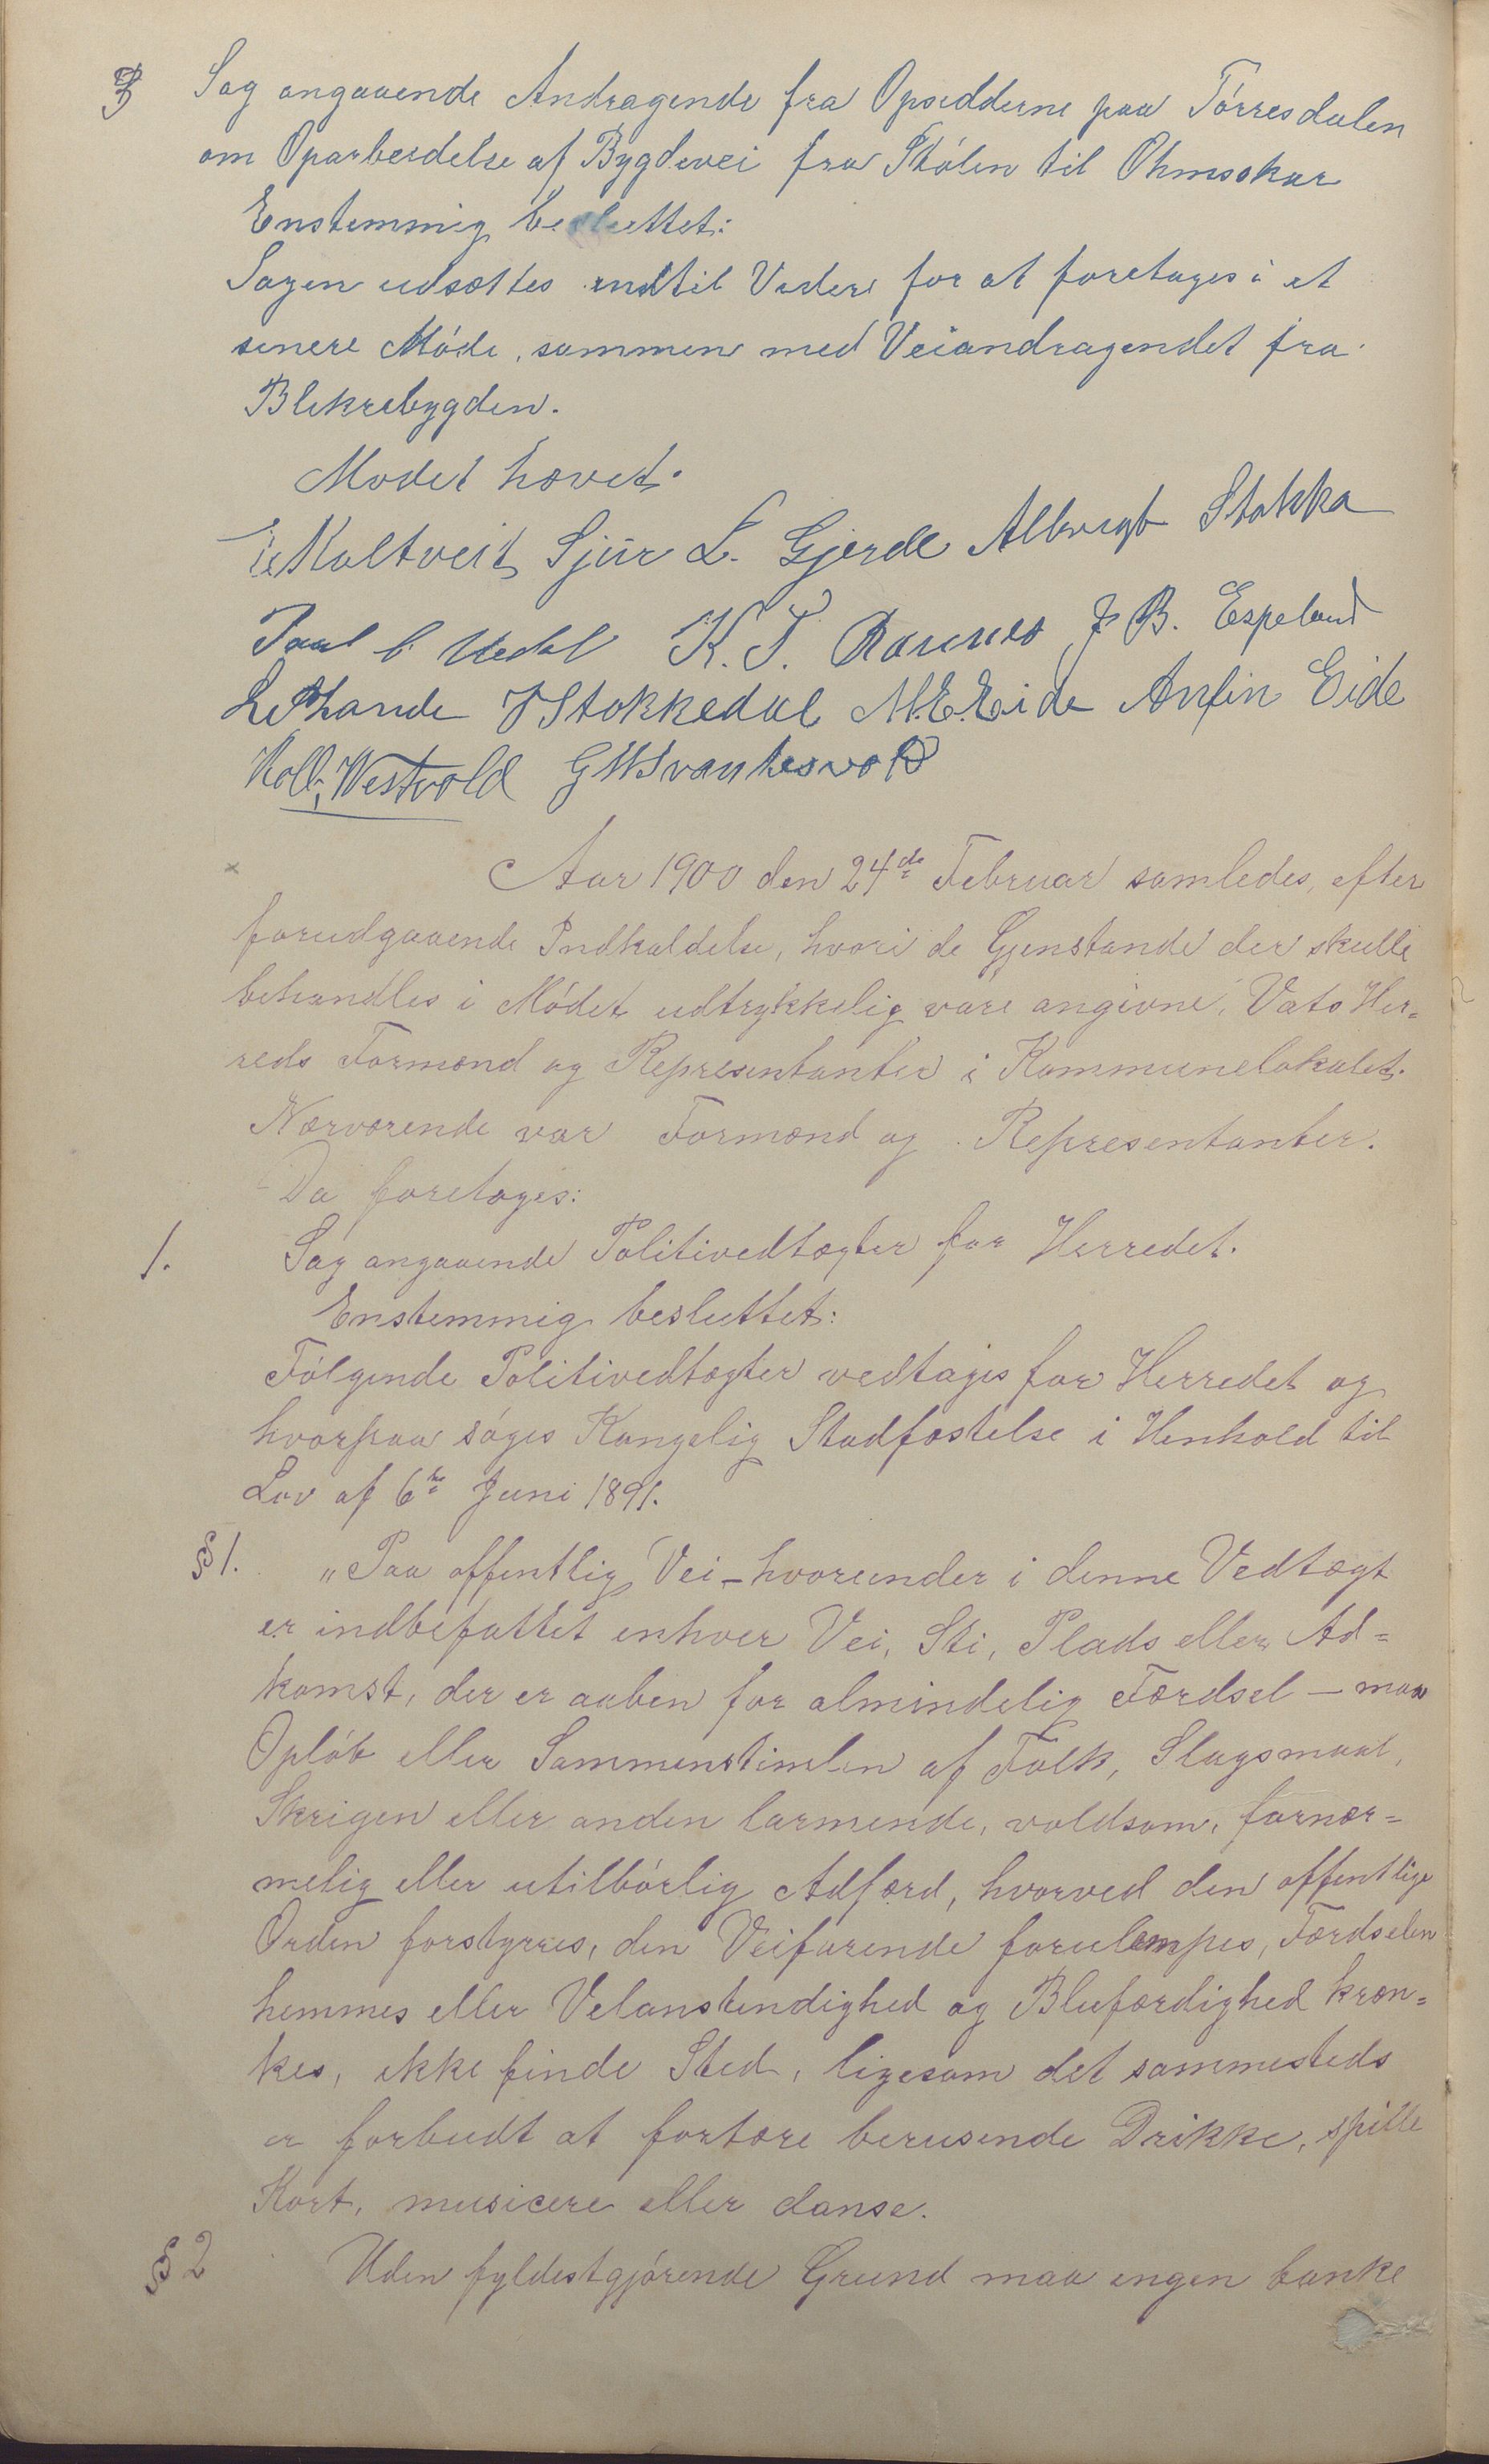 3 Sag angaaende Andragende fra Opsidderne paa Tørresdalen
om Oparbeidelse af Bygdevei fra Stólen til Ohmsskar
Enstemmig besluttet:
Sagen udsættes indtil Videre for at foretages i et
senere Móde, sammen med Veiandragendet fra
Blikrabygden.
Mødet hævet.
Kaltveit Sjur L. Gjerde Albrigt Stakka
Paul K. T. Raunes J B. Espeland
J Stokkedal M. E. Eide Anfin Eide
Westvold G W Svantesvold
Aar 1900 den 24de Februar samledes, efter
forudgaaende Indkaldelse, hvori de Gjenstande der skulle
behandles i Módet udtrykkelig vare angivne, Vats Her=
reds Formænd og Representanter i Kommunelokalet.
Nærværende var Formænd og Representanter.
Da foretoges:
1. Sag angaaende Politivedtægter for Herredet.
Enstemmig besluttet:
Fólgende Politivedtægter vedtages for Herredet og
hvorpaa sóges Kongelig Stadfæstelse i Henhold til
Lov af 6te Juni 1891.
§ 1. „Paa offentlig Vei – hvorunder i denne Vedtægt
er indbefattet enhver Vei, Sti, Plads eller Ad=
komst, der er aaben for almindelig Færdsel – maa
Oplób eller Sammenstimlen af Folk, Slagsmaal,
Skrigen eller anden larmende, voldsom, fornær=
melig eller utilbórlig Adfærd, hvorved den offentlige
Orden forstyrres, den Veifarende forulempes, Færdselen
hemmes eller Velanstendighed og Blufærdighed kræn=
kes, ikke finde Sted, ligesom det sammesteds
er forbudt at fortære berusende Drikke, spille
Kort, musicere eller danse.
§ 2 Uden fyldestgjórende Grund maa ingen banke